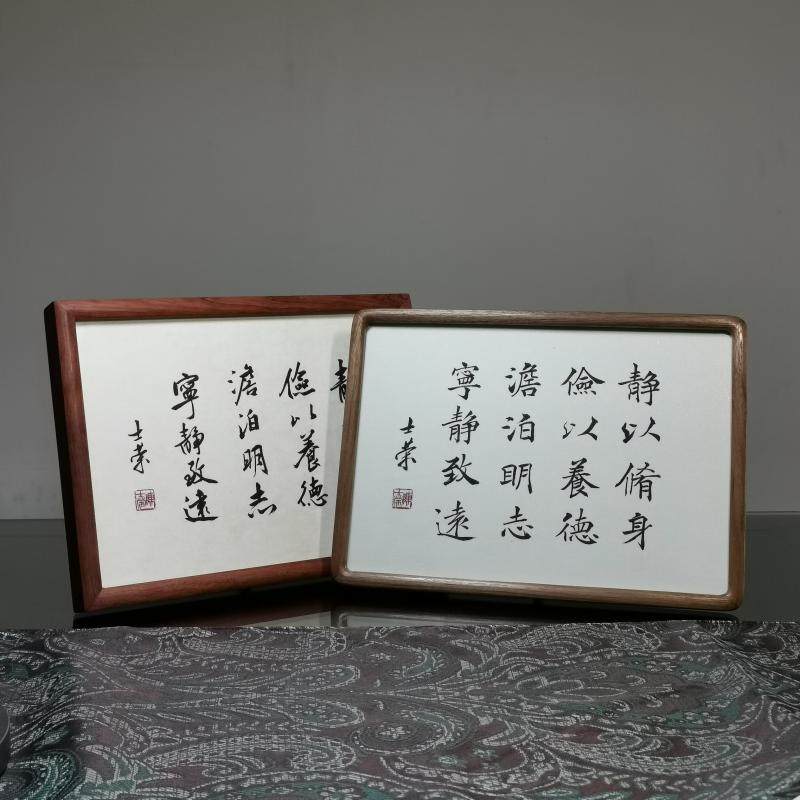 儉以養德
澹泊明志
寧静致遠
士荣
静以脩身
儉以養德
澹泊明志
寧静致遠
士荣